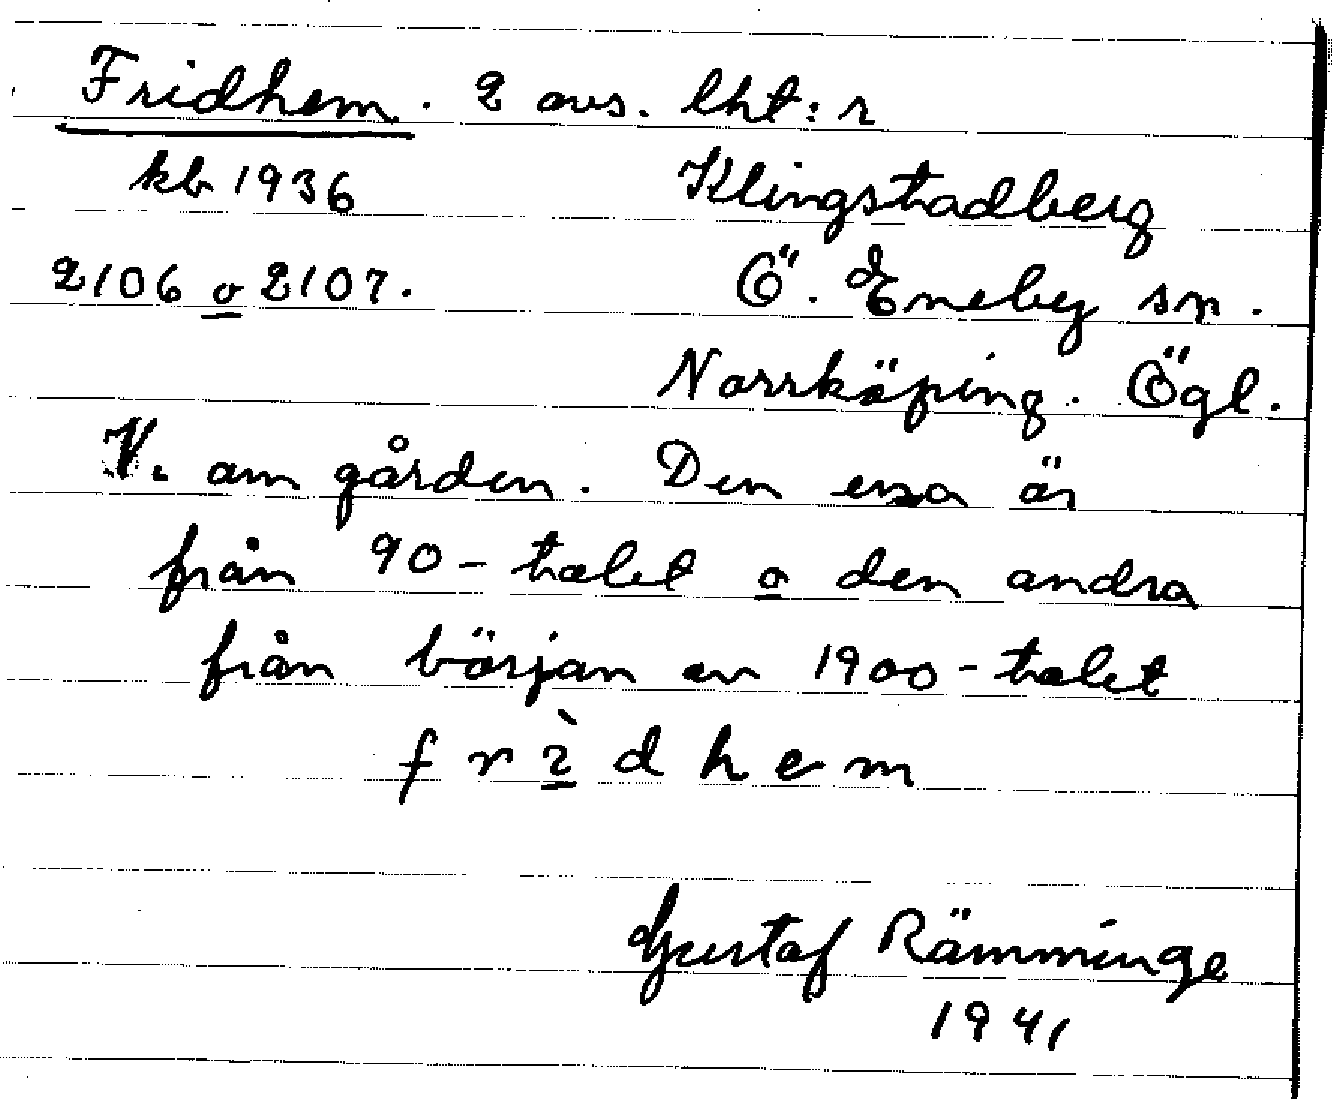 Fridhem. 2 avs. lht:r
kb 1936 Klingstadberg
2106 o 2107. Ö. Eneby sn.
Norrköping. Ögl.
V. om gården. Den ena är
från 90-talet o den andra
från början av 1900-talet
f r ì d h e m
Gustaf Rämminge
1941